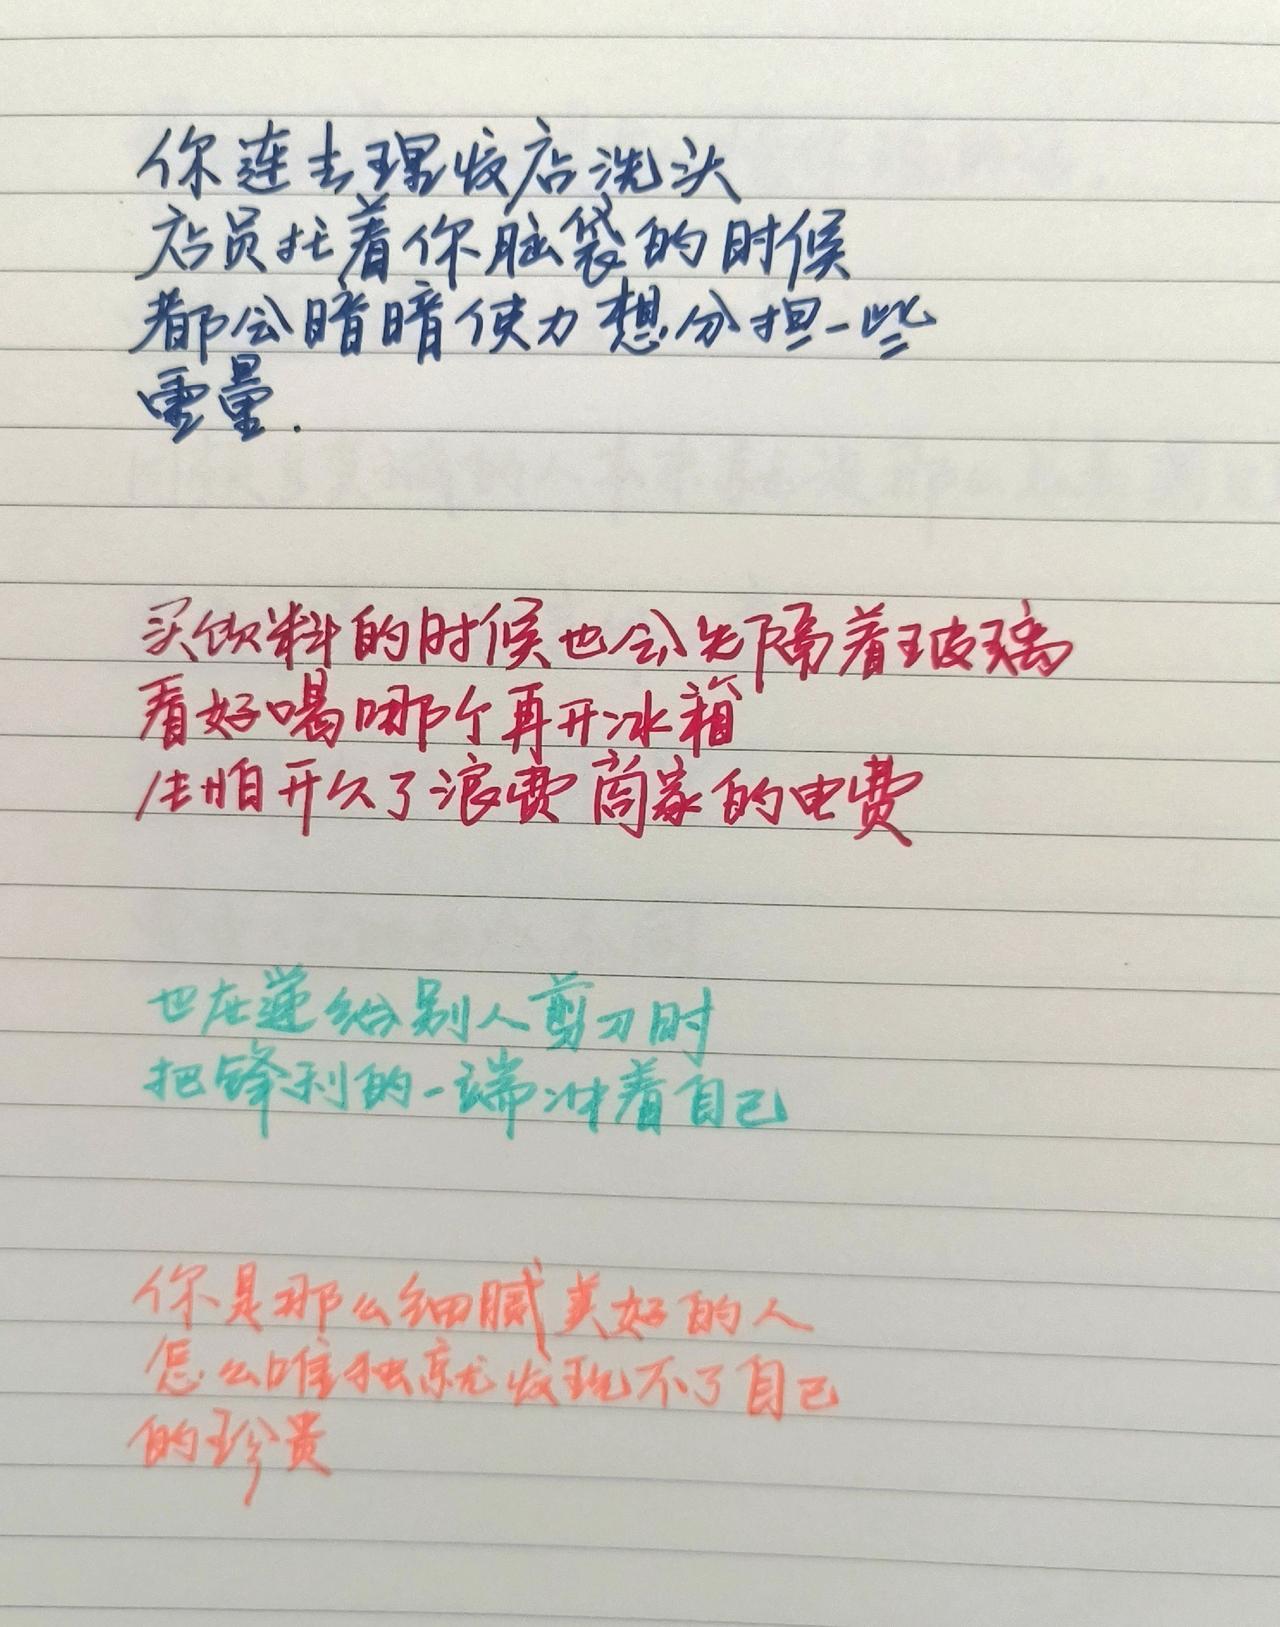 你连去理发店洗头
店员托着你脑袋的时候
都会暗暗使力想分担一些
重量.
买饮料的时候也会先隔着玻璃
看好喝哪个再开冰箱
生怕开久了浪费商家的电费
也在递给别人剪刀时
把锋利的一端冲着自己
你是那么细腻美好的人
怎么唯独就发现不了自己
的珍贵